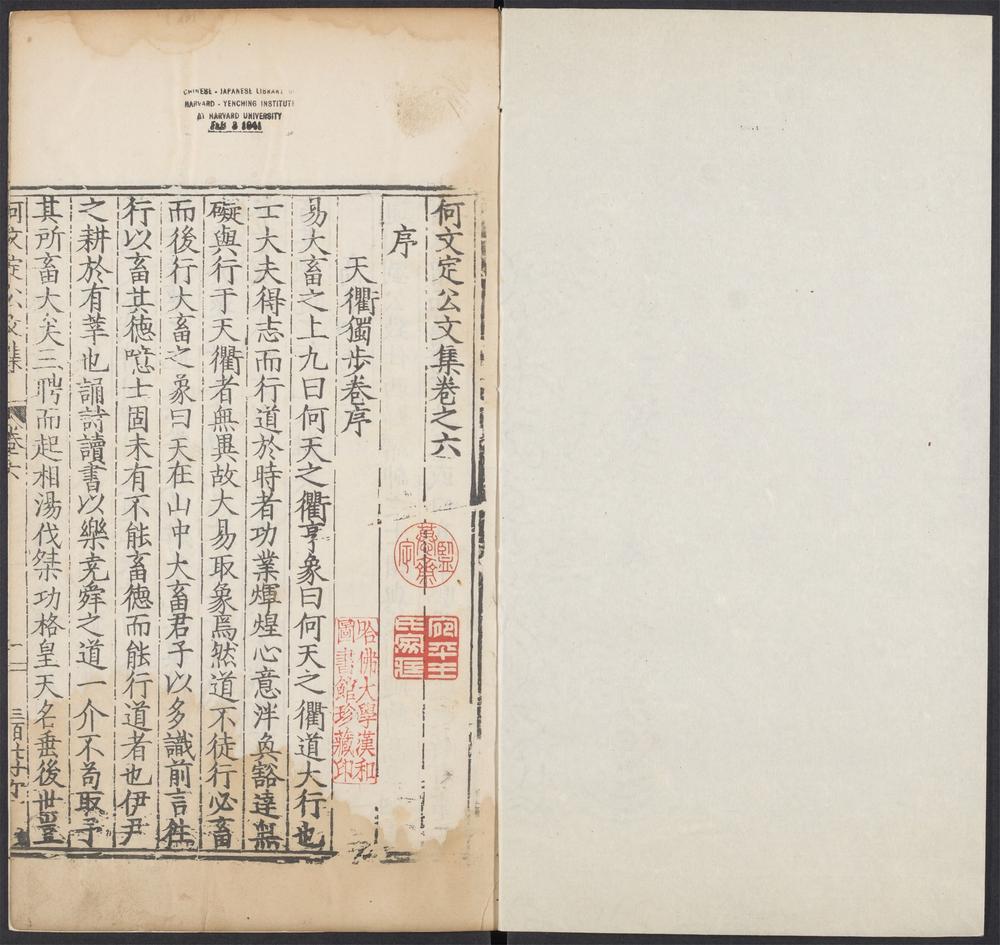 CHINESE - JAPANESE LIBRARY
HARVARD - YENCHING INSTITUTE
AT HARVARD UNIVERSITY
FEB 3 1941
何文定公文集卷之六
序
天衢獨步卷序
易大畜之上九曰何天之衢亨象曰何天之衢道大行也
士大夫得志而行道於時者功業煇煌心意泮奐豁達無
礙與行于天衢者無異故大易取象焉然道不徒行必畜
而後行大畜之象曰天在山中大畜君子以多識前言徃
行以畜其德噫士固未有不能畜德而能行道者也伊尹
之耕於有莘也誦詩讀書以樂堯舜之道一介不苟取予
其所畜大矣三聘而起相湯伐桀功格皇天名垂後世豈
何文定公文集 卷六
哈佛大學漢和
圖書館珍藏印